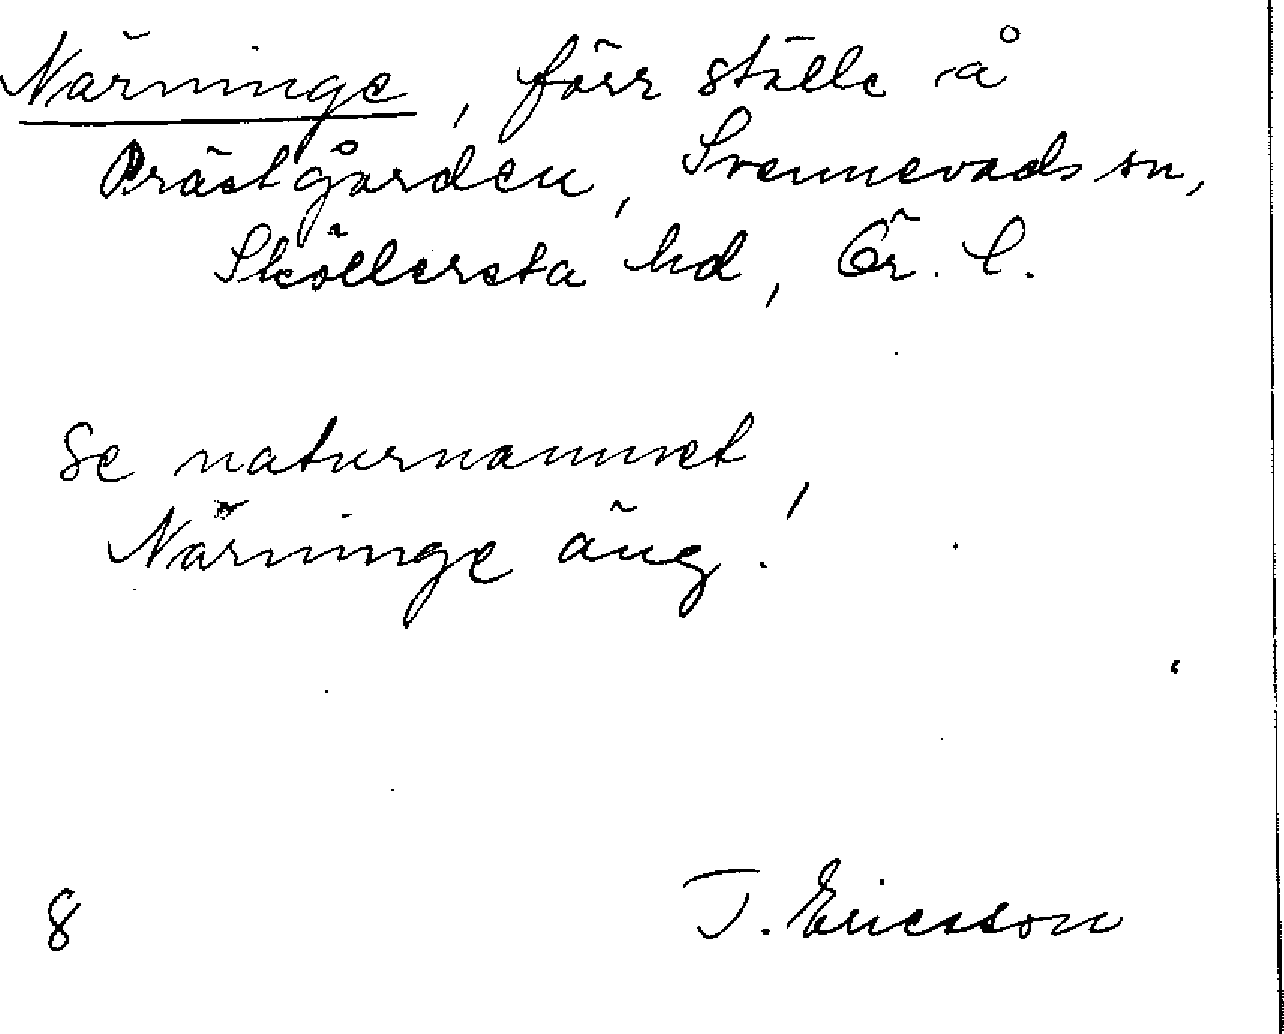 Närninge, förr ställe å
Prästgården, Svennevads sn,
Sköllersta hd, Ör. l.
Se naturnamnet
Närninge äng!
8
T. Ericsson